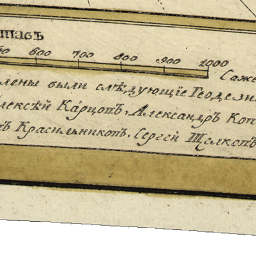 штабъ
600 700 800 900 1000
Саже
лены были слѣдующіе Геодези
лексѣй Карцопъ, Александръ Коп
ъ Красильникопъ, Сергей Щелкопъ